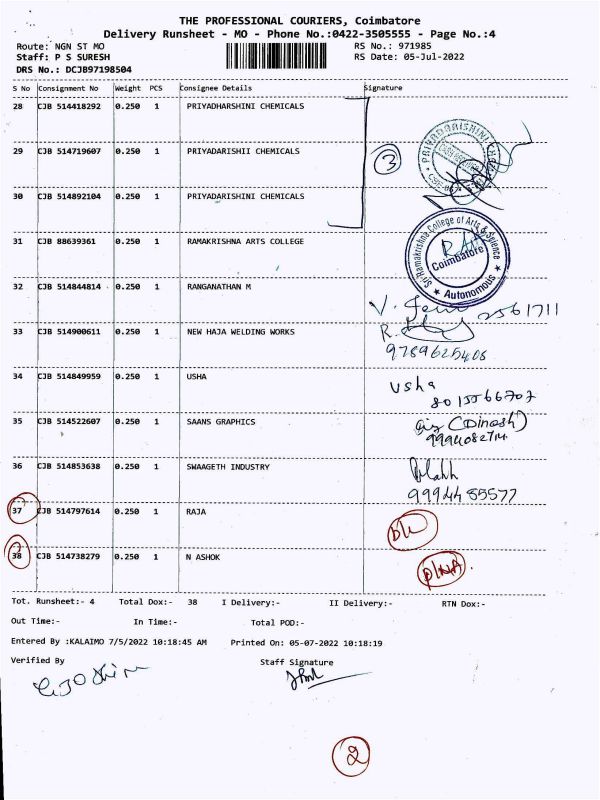 THE PROFESSIONAL COURIERS, Coimbatore
Delivery Runsheet - MO - Phone No.:0422-3505555 - Page No.:4
Route: NGN ST MO RS No.: 971985
Staff: P S SURESH RS Date: 05-Jul-2022
DRS No.: DCJB97198504
S No Consignment No Weight PCS Consignee Details Signature
28 CJB 514418292 0.250 1 PRIYADHARSHINI CHEMICALS
29 CJB 514719607 0.250 1 PRIYADARISHII CHEMICALS 3
30 CJB 514892104 0.250 1 PRIYADARISHINI CHEMICALS
31 CJB 88639361 0.250 1 RAMAKRISHNA ARTS COLLEGE Sri Ramakrishna College of Arts & Science Coimbatore Autonomous
32 CJB 514844814 0.250 1 RANGANATHAN M
2561711
33 CJB 514900611 0.250 1 NEW HAJA WELDING WORKS
9789625406
34 CJB 514849959 0.250 1 USHA Usha
8015566707
35 CJB 514522607 0.250 1 SAANS GRAPHICS (Dinesh)
9994082714
36 CJB 514853638 0.250 1 SWAAGETH INDUSTRY
9994485577
37 CJB 514797614 0.250 1 RAJA
38 CJB 514738279 0.250 1 N ASHOK
Tot. Runsheet:- 4 Total Dox:- 38 I Delivery:- II Delivery:- RTN Dox:-
Out Time:- In Time:- Total POD:-
Entered By :KALAIMO 7/5/2022 10:18:45 AM Printed On: 05-07-2022 10:18:19
Verified By Staff Signature
2